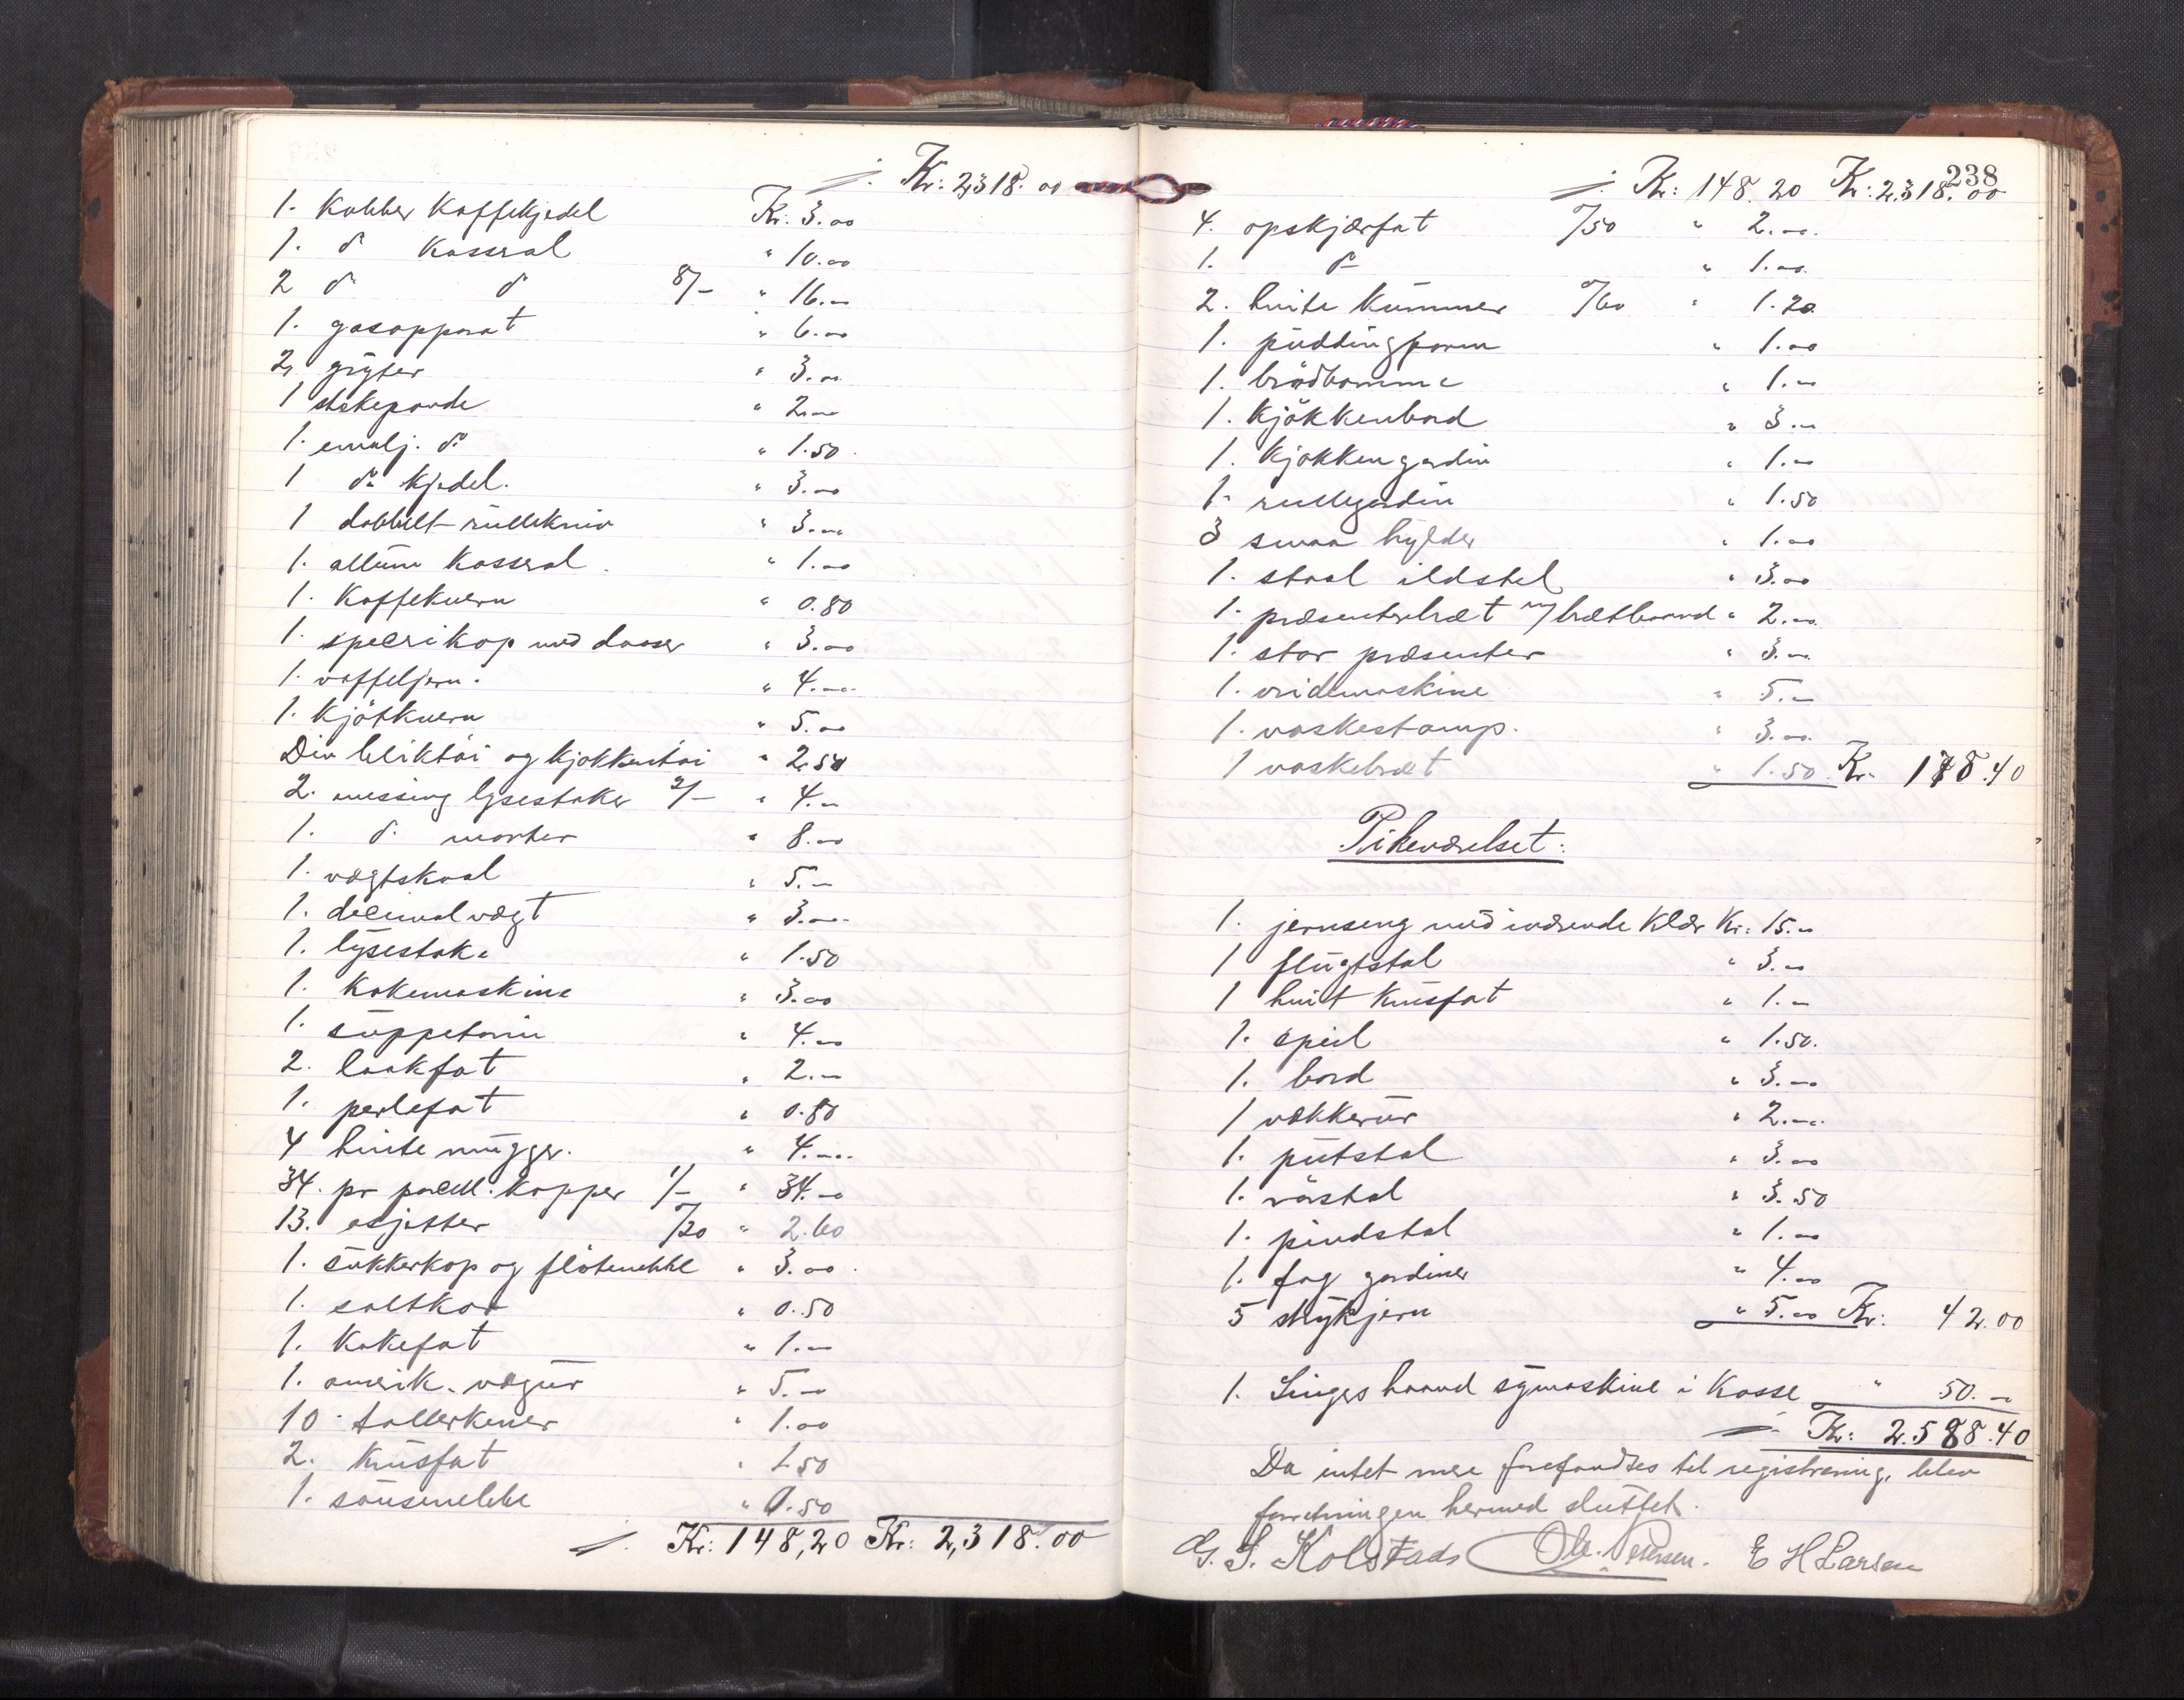 Kr: 2318.00
1. Kobber Kaffekjedel Kr. 3.00
1. do Kasseral " 10.00
2 do do 8/- " 16.00
1. gasapparat " 6.00
2 gryter " 3.00
1 stekepande " 2.00
1. emalj. do " 1.50
1 do kjedel. " 3.00
1 dobbelt rullekniv " 3.00
1. allum Kasseral. " 1.00
1. Kaffekvern " 0.80
1. specerikop med daaser " 3.00
1. vaffeljern. " 4.00
1. Kjötkvern " 5.00
Div bliktöi og kjökkentöi " 2.50
2. messing lysestaker 2/- " 4.00
1. do morter " 8.00
1. vægtskaal " 5.00
1. decimalvægt " 3.00
1. lysestake " 1.50
1. Kokemaskine " 3.00
1. suppeterin " 4.00
2. laakfat " 2.00
1. perlefat " 0.80
4 hvite mugger. " 4.00
34. pr porcell: kopper 1/- " 34.00
13. asjetter 0/20 " 2.60
1. sukkerkop og flötenebbe " 3.00
1. saltkar " 0.50
1. Kakefat " 1.00
1. amerik. vægur " 5.00
10 tallerkener " 1.00
2. Krusfat " 1.50
1. sausenebbe " 0.50
Kr: 148,20 Kr: 2,318.00
238
Kr: 148.20 Kr: 2.318.00
4. opskjærfat 0/50 " 2.00
1. do " 1.00
2. hvite Kummer 0/60 " 1.20
1. puddingform " 1.00
1. brödbomme " 1.00
1. Kjökkenbord " 3.00
1. Kjökkengardin " 1.00
1. rullegardin " 1.50
3 smaa hylder " 1.00
1. staal ildstel " 3.00
1. præsenterbræt m/ brætbaand " 2.00
1. stor præsenter " 3.00
1. vridemaskine " 5.00
1. vaskestamp. " 3.00
1 vaskebræt " 1.50 Kr. 178.40
Pikeværelset:
1. jernseng med iværende Klær Kr: 15.00
1 flugtstol " 3.00
1 hvit Krusfat " 1.00
1. speil " 1.50.
1. bord " 3.00
1 vækkerur " 2.00
1. putstol " 3.00
1. rörstol " 3.50
1. pindstol " 1.00
1. fag gardiner " 4.00
5 strykjern " 5.00 Kr: 42.00
1. Singes haand symaskine i Kasse " 50.00
Kr: 2.588.40
Da intet mere forefandtes til registrering, blev
forretningen hermed sluttet.
G. S. Kolstads Ole Petersen. E H Larsen